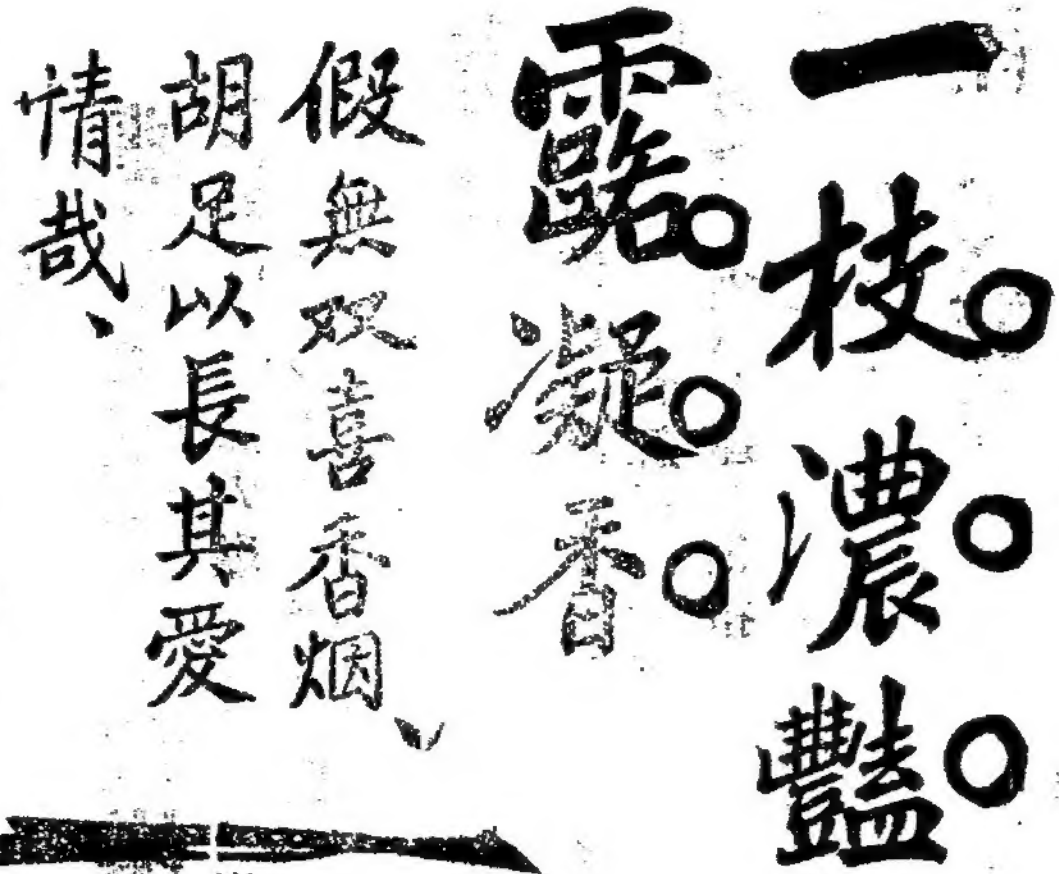 一枝。濃。豔。
露。凝。香。
假無双喜香烟、
胡足以長其愛
情哉、